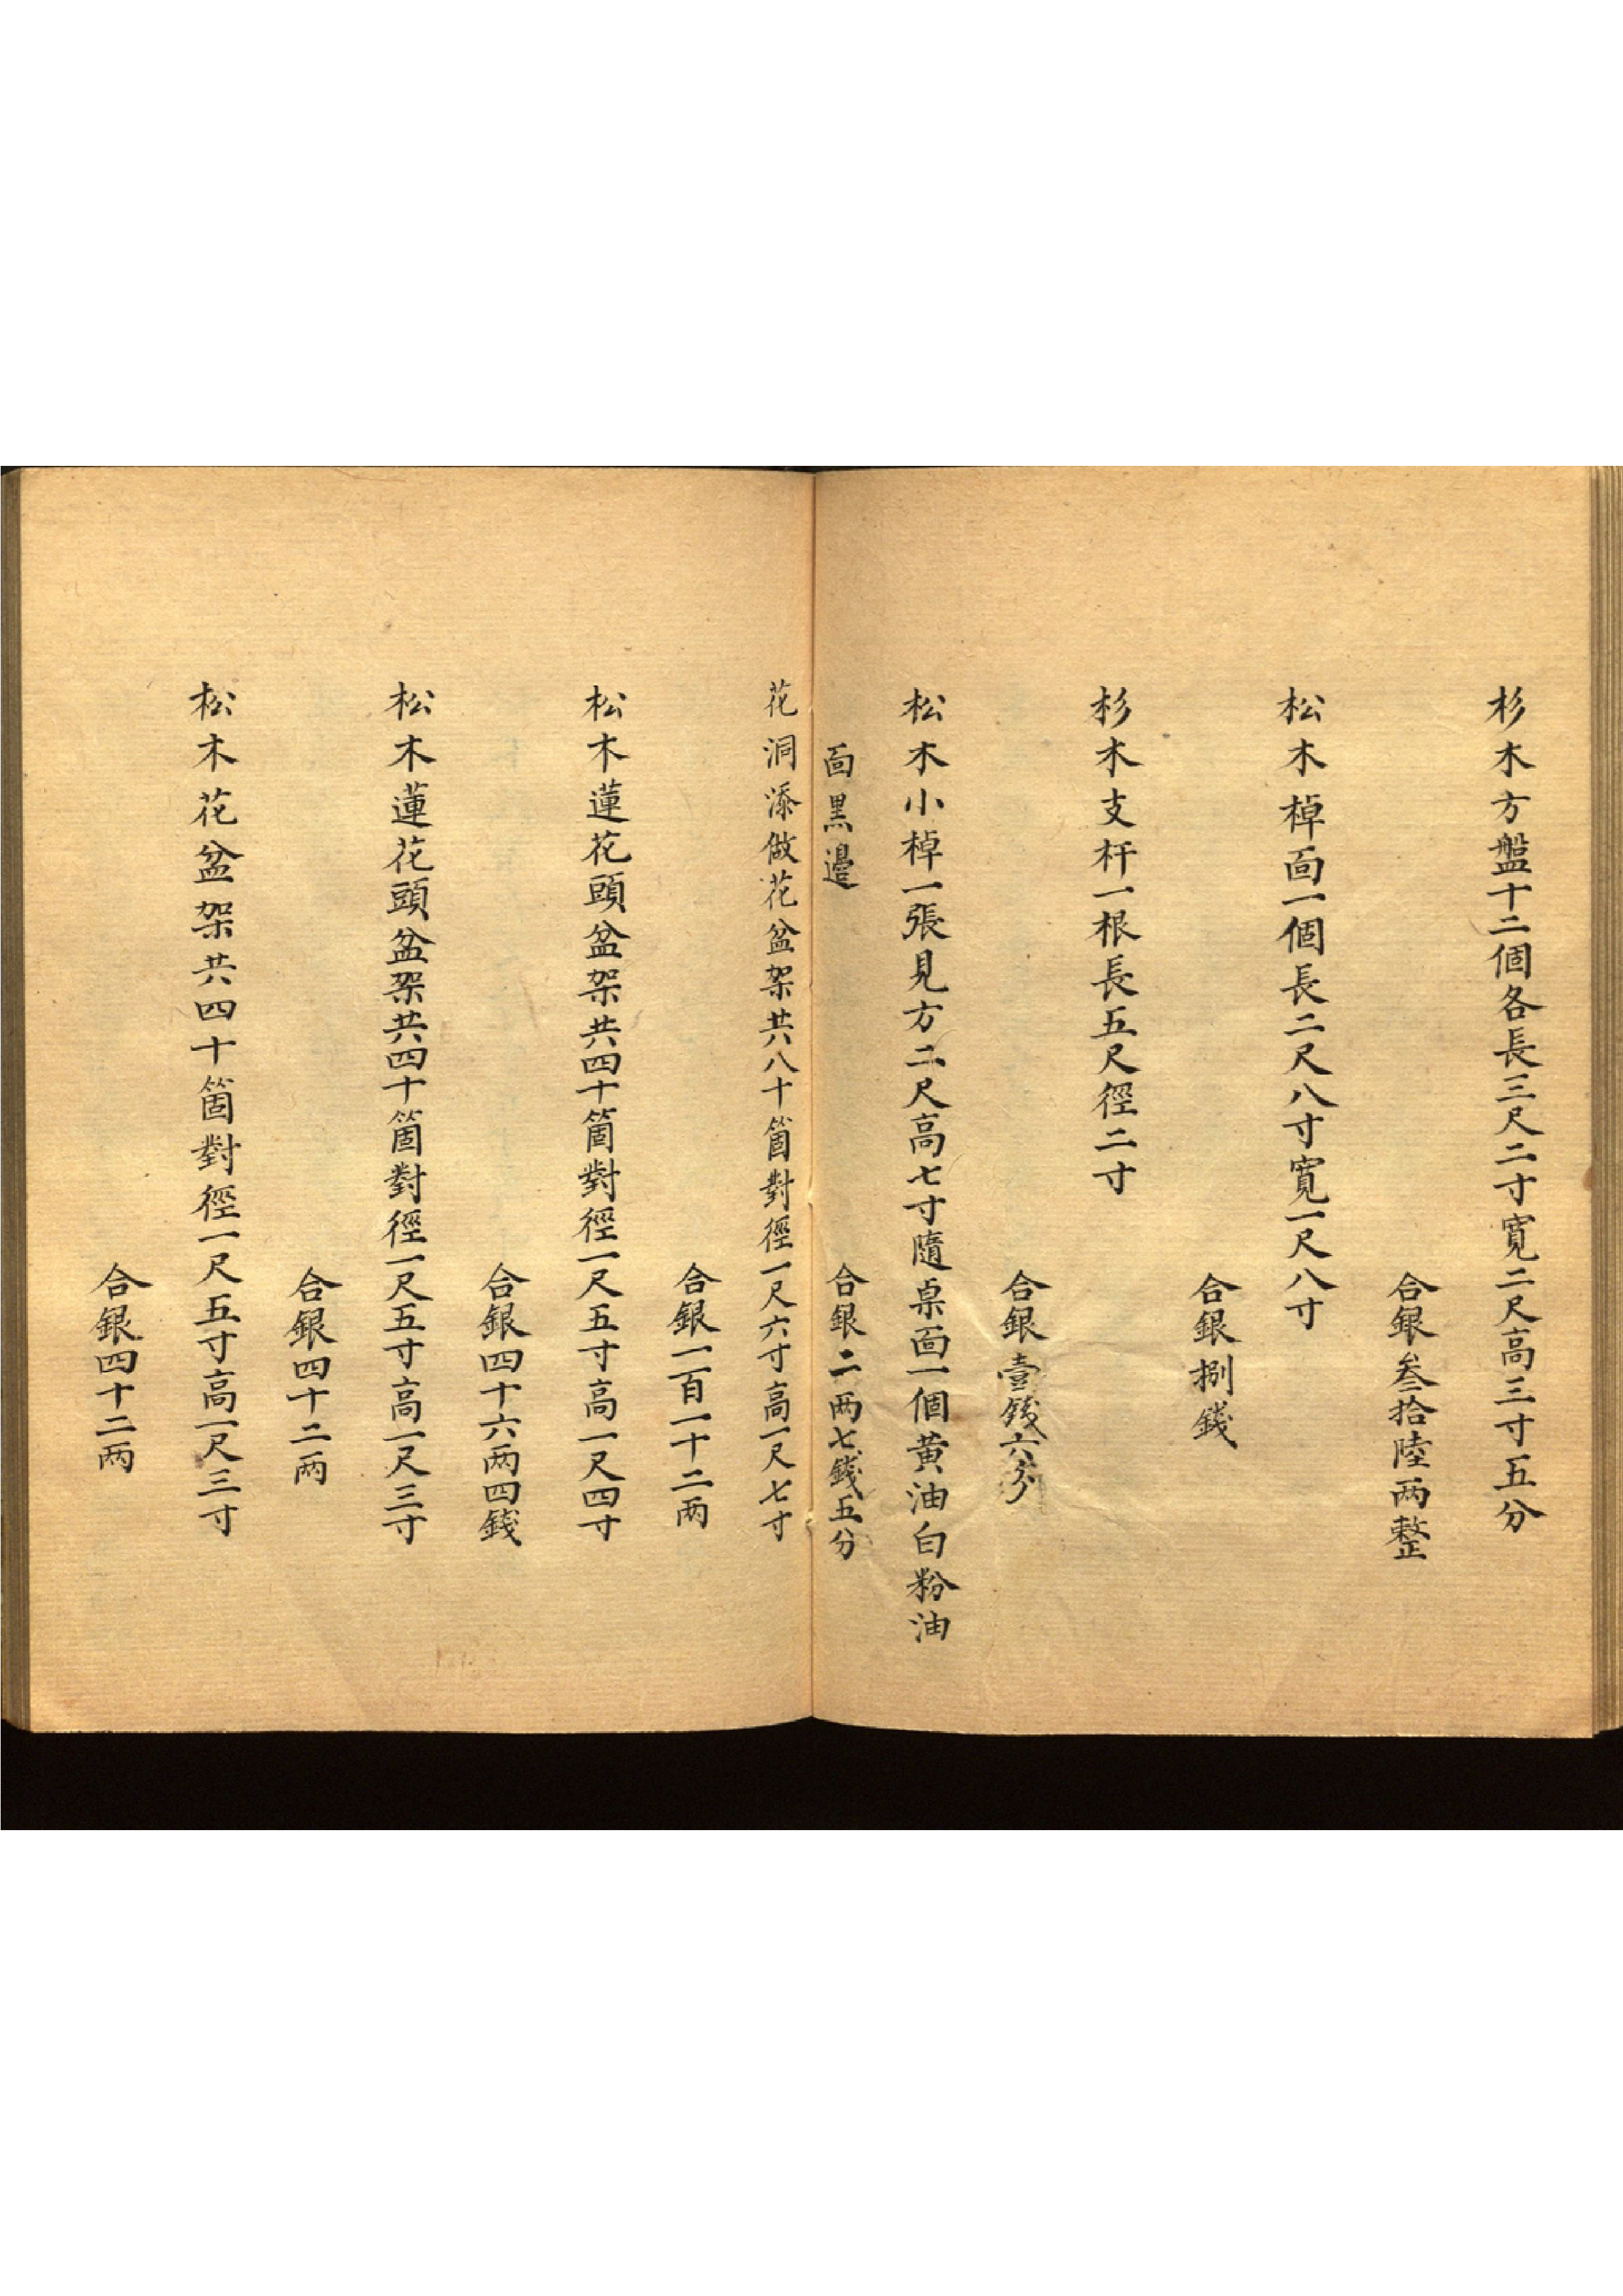 杉木方盤十二個各長三尺二寸寬二尺高三寸五分
合銀叁拾陸两整
松木棹面一個長二尺八寸寬一尺八寸
合銀捌錢
杉木支杆一根長五尺徑二寸
合銀壹錢六分
松木小棹一張見方二尺高七寸隨桌面一個黄油白粉油
面黑邊
合銀二两七錢五分
花洞添做花盆架共八十箇對徑一尺六寸高一尺七寸
合銀一百一十二两
松木蓮花頭盆架共四十箇對徑一尺五寸高一尺四寸
合銀四十六两四錢
松木蓮花頭盆架共四十箇對徑一尺五寸高一尺三寸
合銀四十二两
松木花盆架共四十箇對徑一尺五寸高一尺三寸
合銀四十二两